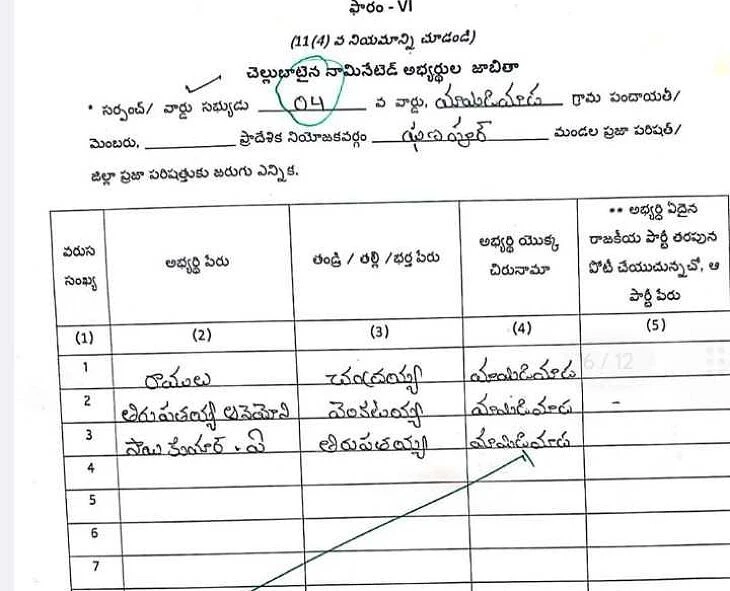 ఫారం - VI
(11(4) వ నియమాన్ని చూడండి)
చెల్లుబాటైన నామినేటెడ్ అభ్యర్థుల జాబితా
* సర్పంచ్/ వార్డు సభ్యుడు 04 వ వార్డు, మామిడిమాడ గ్రామ పంచాయతీ/
మెంబరు, ప్రాదేశిక నియోజకవర్గం ఘణపూర్ మండల ప్రజా పరిషత్/
జిల్లా ప్రజా పరిషత్తుకు జరుగు ఎన్నిక.
వరుస సంఖ్య అభ్యర్థి పేరు తండ్రి / తల్లి /భర్త పేరు అభ్యర్థి యొక్క చిరునామా ** అభ్యర్థి ఏదైన రాజకీయ పార్టీ తరపున పోటీ చేయుచున్నచో, ఆ పార్టీ పేరు
(1) (2) (3) (4) (5)
1 రాములు చంద్రయ్య మామిడిమాడ 6 / 12
2 తిరుపతయ్య వెంకటయ్య మామిడిమాడ -
3 సాయి కుమార్ . పి తిరుపతయ్య మామిడిమాడ
4
5
6
7